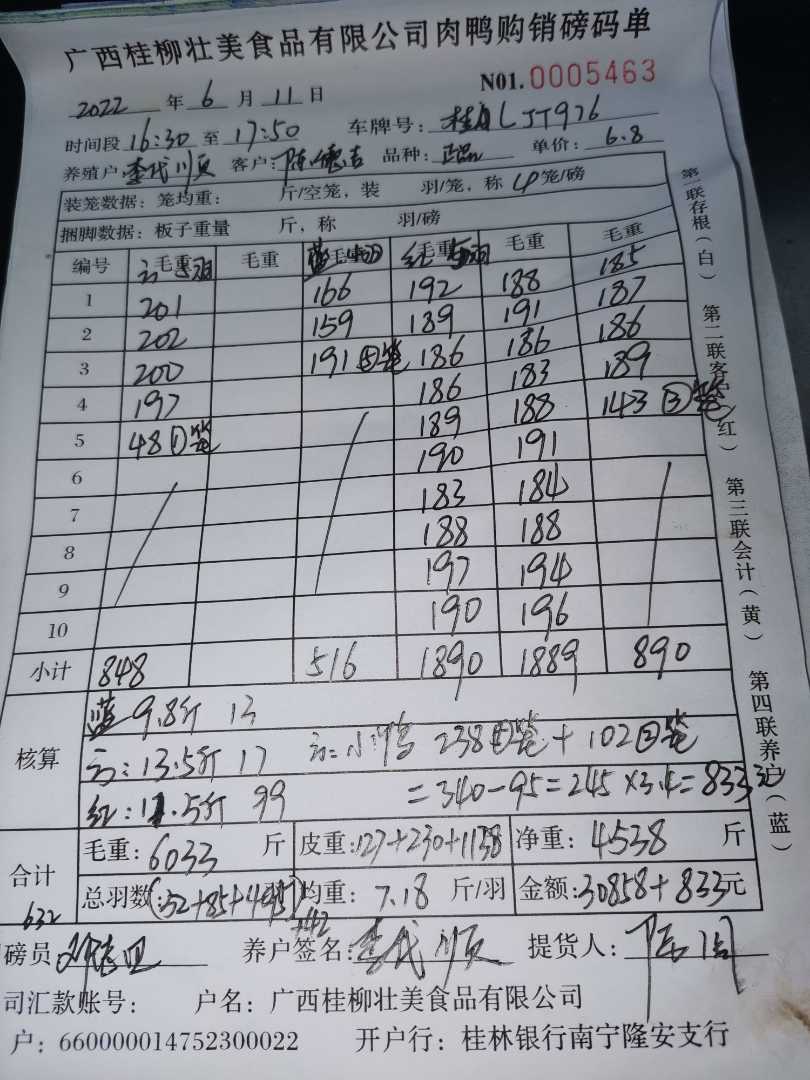 广西桂柳壮美食品有限公司肉鸭购销磅码单
N01.0005463
2022年6月11日
时间段16:30至17:50 车牌号:LJT976
养殖户:李代顺 客户: 品种: 单价:6.8
装笼数据:笼均重: 斤/空笼,装 羽/笼,称4笼/磅
捆脚数据:板子重量 斤,称 羽/磅
编号 毛重 毛重 毛重 毛重 毛重 毛重
蓝 红 185
1 201 166 192 188 187
2 202 159 189 191 186
3 200 191⑤笼 186 186 189
4 197 186 183 143③笼
5 48①笼 189 188
6 190 191
7 183 184
8 188 188
9 197 194
10 190 196
小计 848 516 1890 1889 890
核算
蓝9.8斤 13
13.5斤 17 238 笼+102 笼
红:11.5斤 99 =340-95=245×3.4=833元
合计
毛重:6033斤 皮重:127+230+1138 净重:4538斤
总羽数: 均重:7.18斤/羽 金额:30858+833元
632 +42
磅员 养户签名:李代顺 提货人:
司汇款账号: 户名:广西桂柳壮美食品有限公司
户:660000014752300022 开户行:桂林银行南宁隆安支行
第一联存根(白) 第二联客户(红) 第三联会计(黄) 第四联养户(蓝)